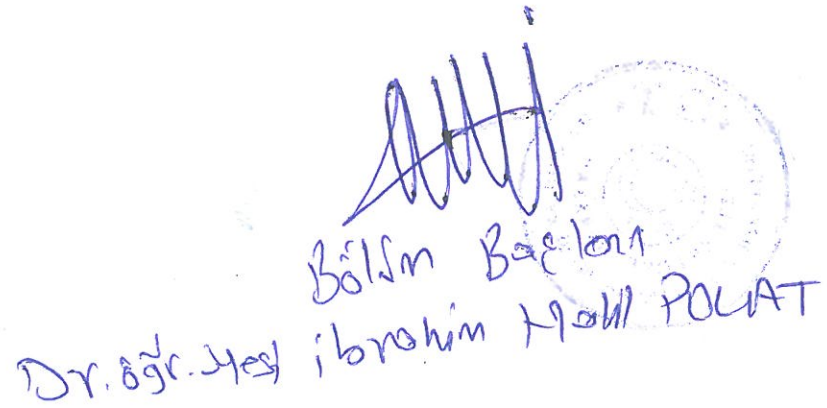 Bölüm Başkanı
Dr. Öğr. Üyesi İbrahim Halil POLAT